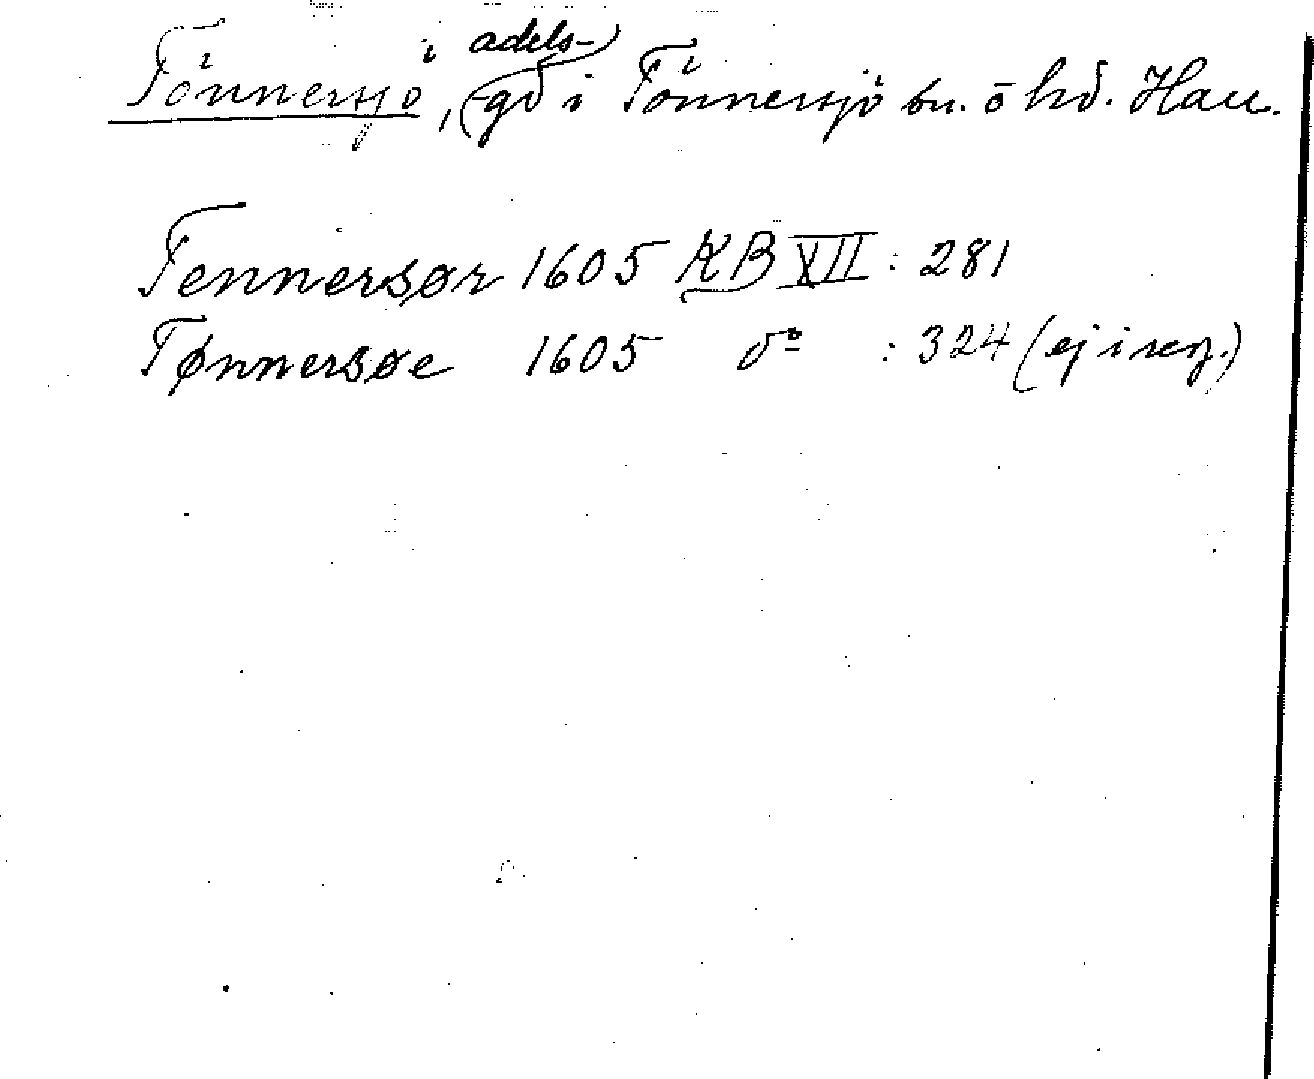 Tönnersjö, (adels-) gd i Tönnersjö sn. o hd. Hall.
Tennersør 1605 KB XII : 281
Tønnersøe 1605 do : 324 (ej i reg.)